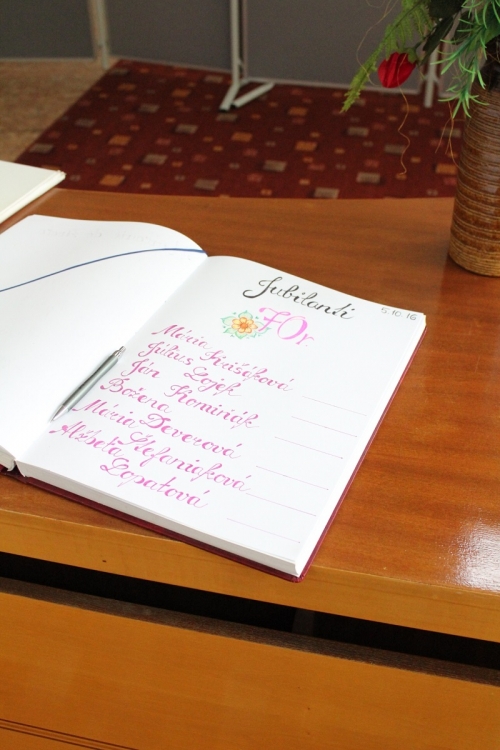 Jubilanti
5.10.16
70r
Mária
Július Lojek
Ján Kominiák
Božena Deverová
Mária Štefaniaková
Alžbeta Lopatová